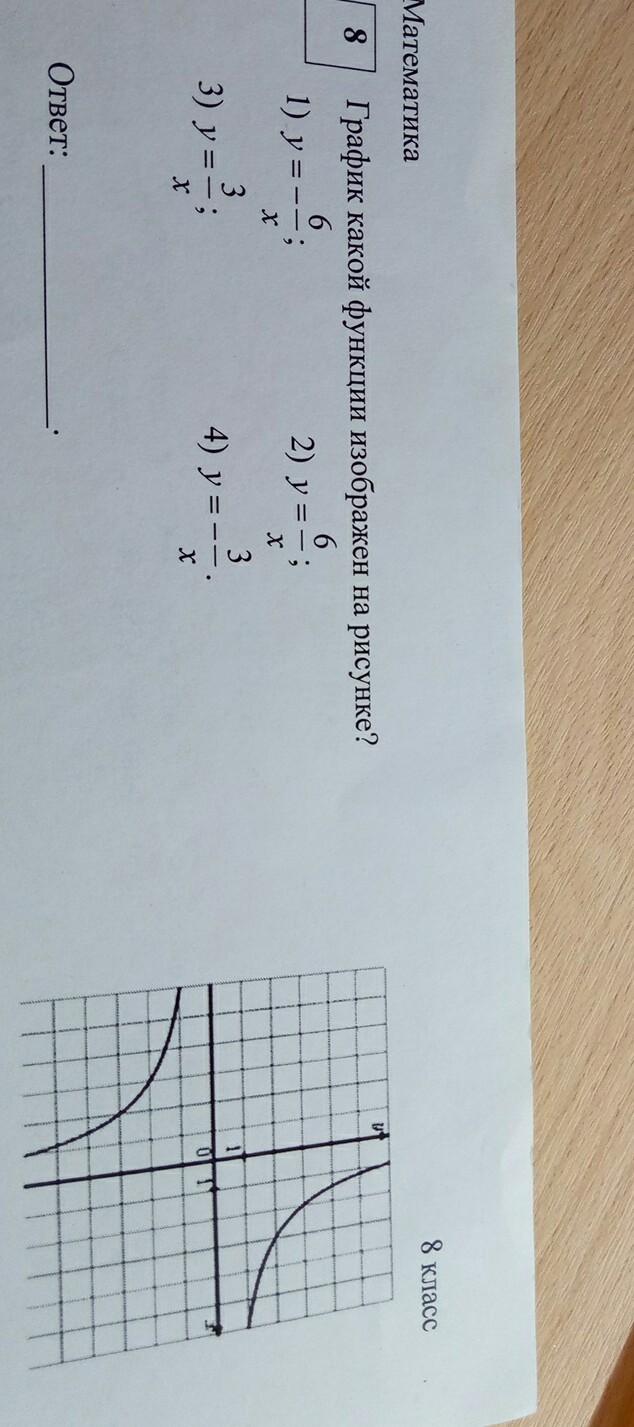 Математика 8 класс
8 График какой функции изображен на рисунке?
1) y = −6/x; 2) y = 6/x;
3) y = 3/x; 4) y = −3/x.
Ответ: ____________.
y
1
0 1 x